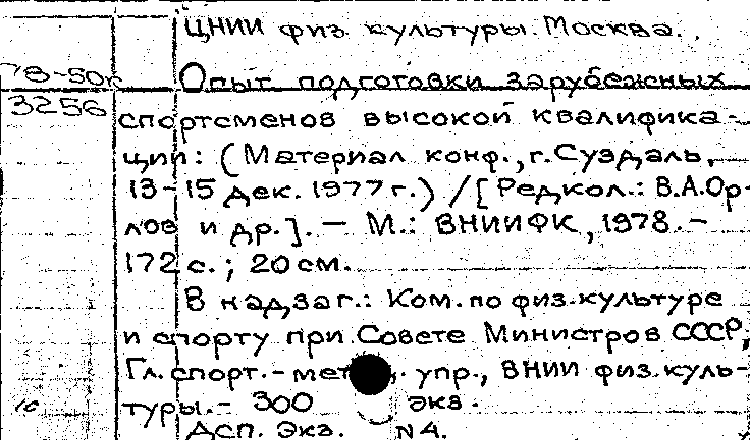 ЦНИИ физ. культуры. Москва.
78-50к
Опыт подготовки зарубежных
3256
спортсменов высокой квалифика-
ции: (Материал конф., г. Суздаль,
13-15 дек. 1977 г.) / [Редкол.: В.А.Ор-
лов и др.]. — М.: ВНИИФК, 1978. -
172 с.; 20 см.
В надзаг.: Ком. по физ. культуре
и спорту при Совете Министров СССР,
Гл. спорт.- упр., ВНИИ физ. куль-
туры. - 300 экз.
ДСП. Экз. N4.